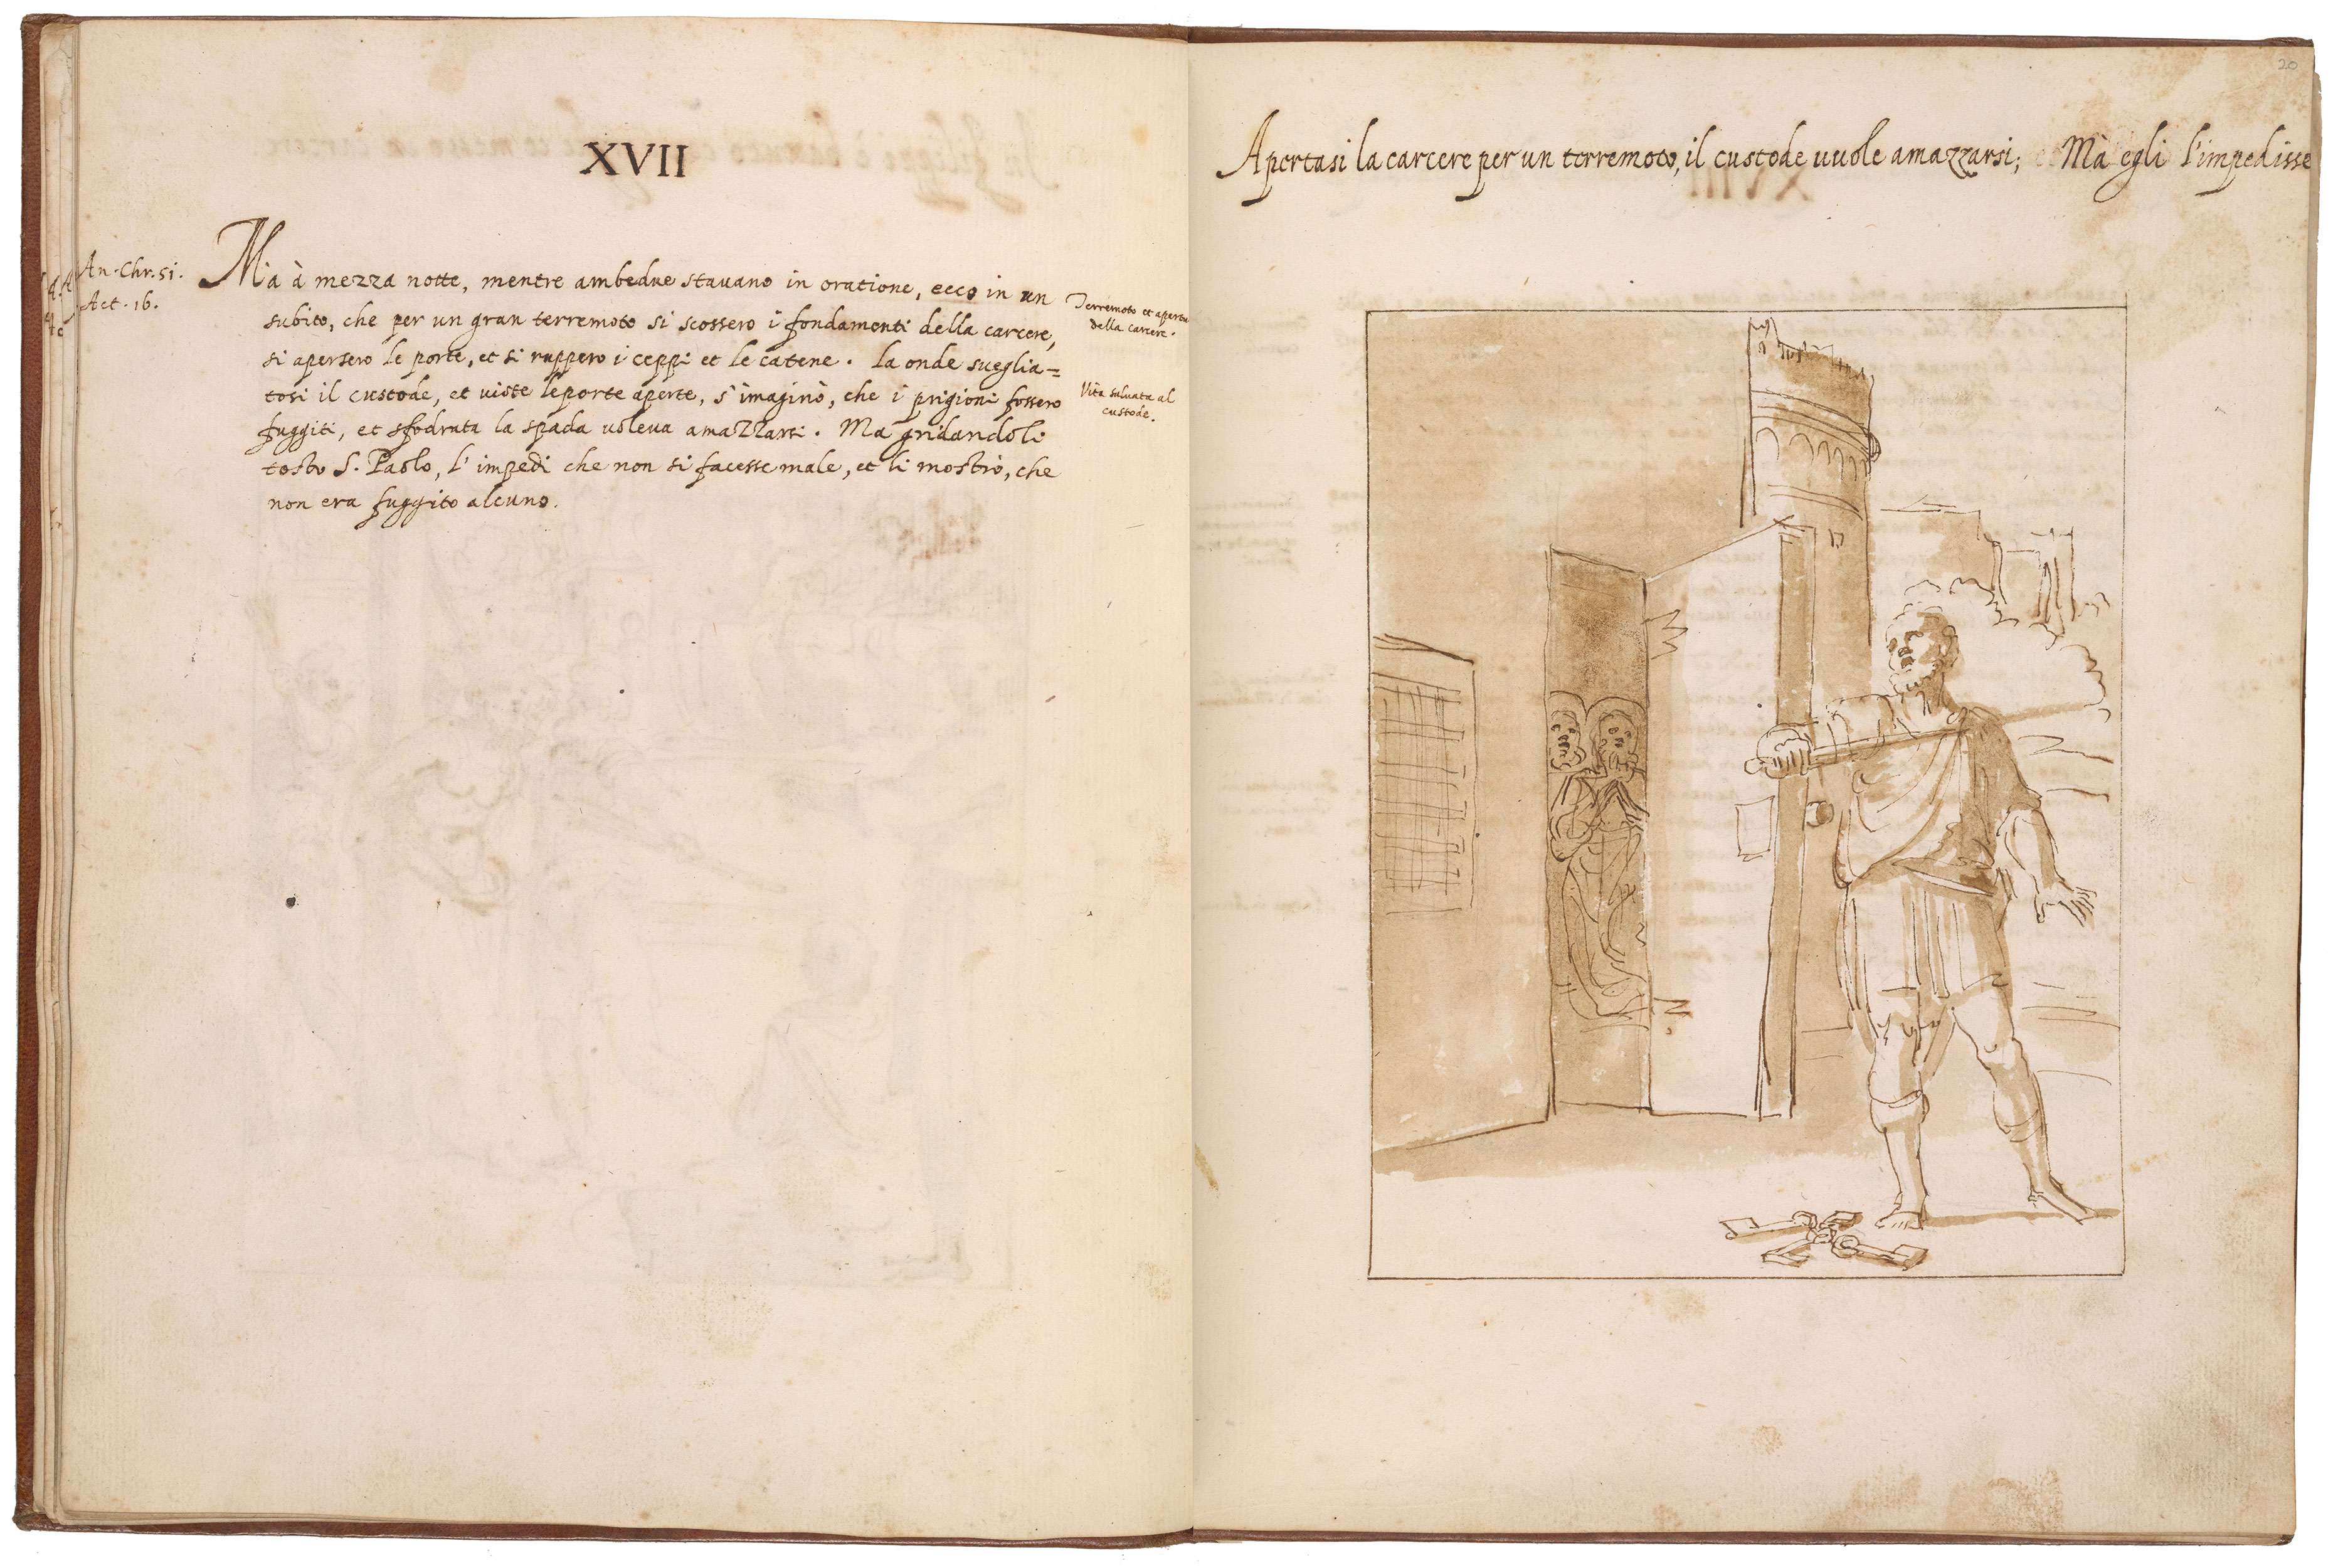 XVII
An. Chr. 51.
Act. 16.
Mà à mezza notte, mentre ambedue stauano in oratione, ecco in un
subito, che per un gran terremoto si scossero i fondamenti della carcere,
si apersero le porte, et si ruppero i ceppi et le catene. la onde sueglia=
tosi il custode, et uiste le porte aperte, s'imaginò, che i prigioni fossero
fuggiti, et sfodrata la spada uoleua amazzarsi. Ma gridandoli
tosto S. Paolo, l'impedì che non si facesse male, et li mostrò, che
non era fuggito alcuno.
Terremoto et apertu
della carcere.
Vita saluata al
custode.
20
Apertasi la carcere per un terremoto, il custode uuole amazzarsi; Mà egli l'impedisse